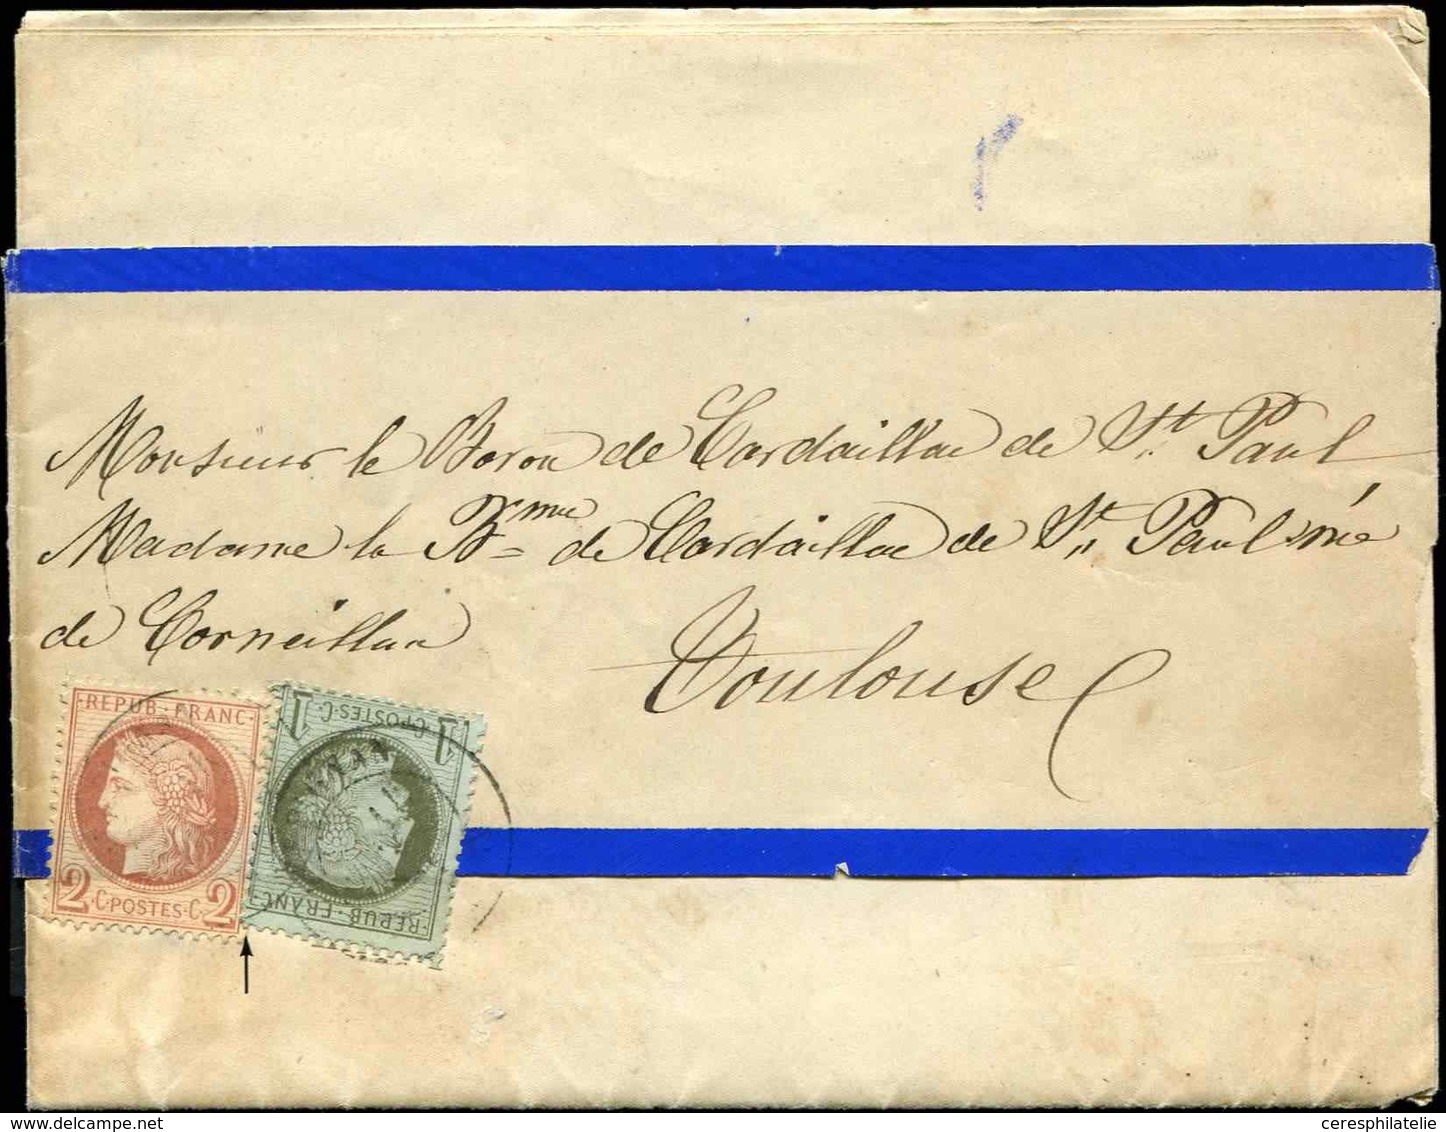 Monsieur le Baron de Cardaillac de St Paul
Madame la Bnne de Cardaillac de St Paul née
de Corneillan
Toulouse
·REPUB·FRANC·
2·C·POSTES·C·2
1·C·POSTES·C·1
·REPUB·FRANC·
delcampe.net
ceresphilatelie